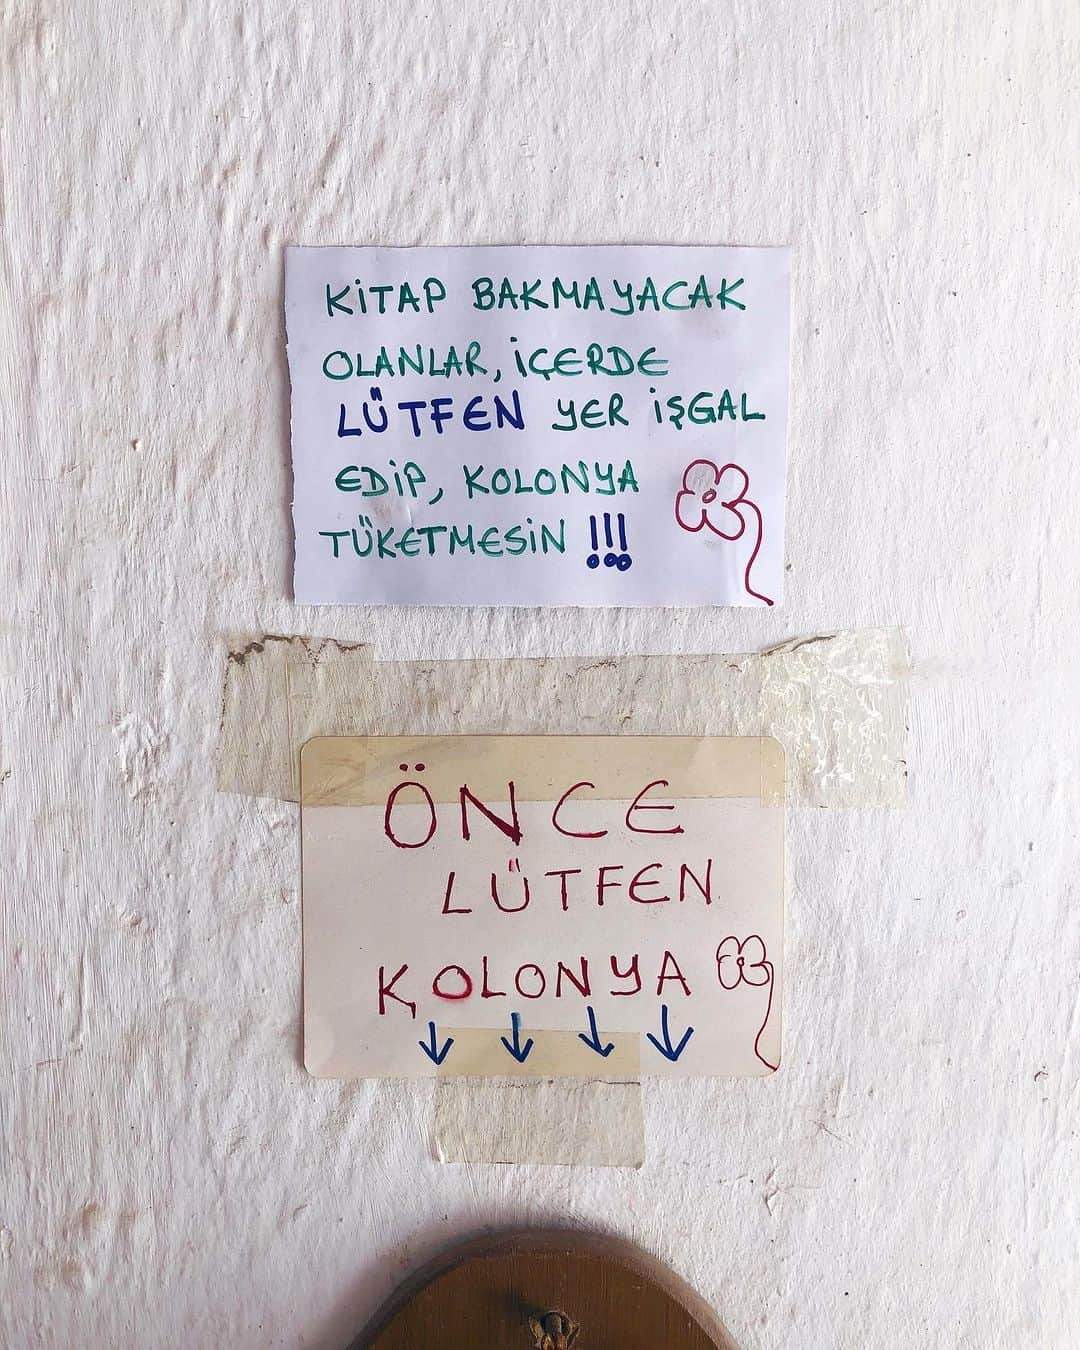 KİTAP BAKMAYACAK
OLANLAR, İÇERDE
LÜTFEN YER İŞGAL
EDİP, KOLONYA
TÜKETMESİN !!!
ÖNCE
LÜTFEN
KOLONYA
↓ ↓ ↓ ↓